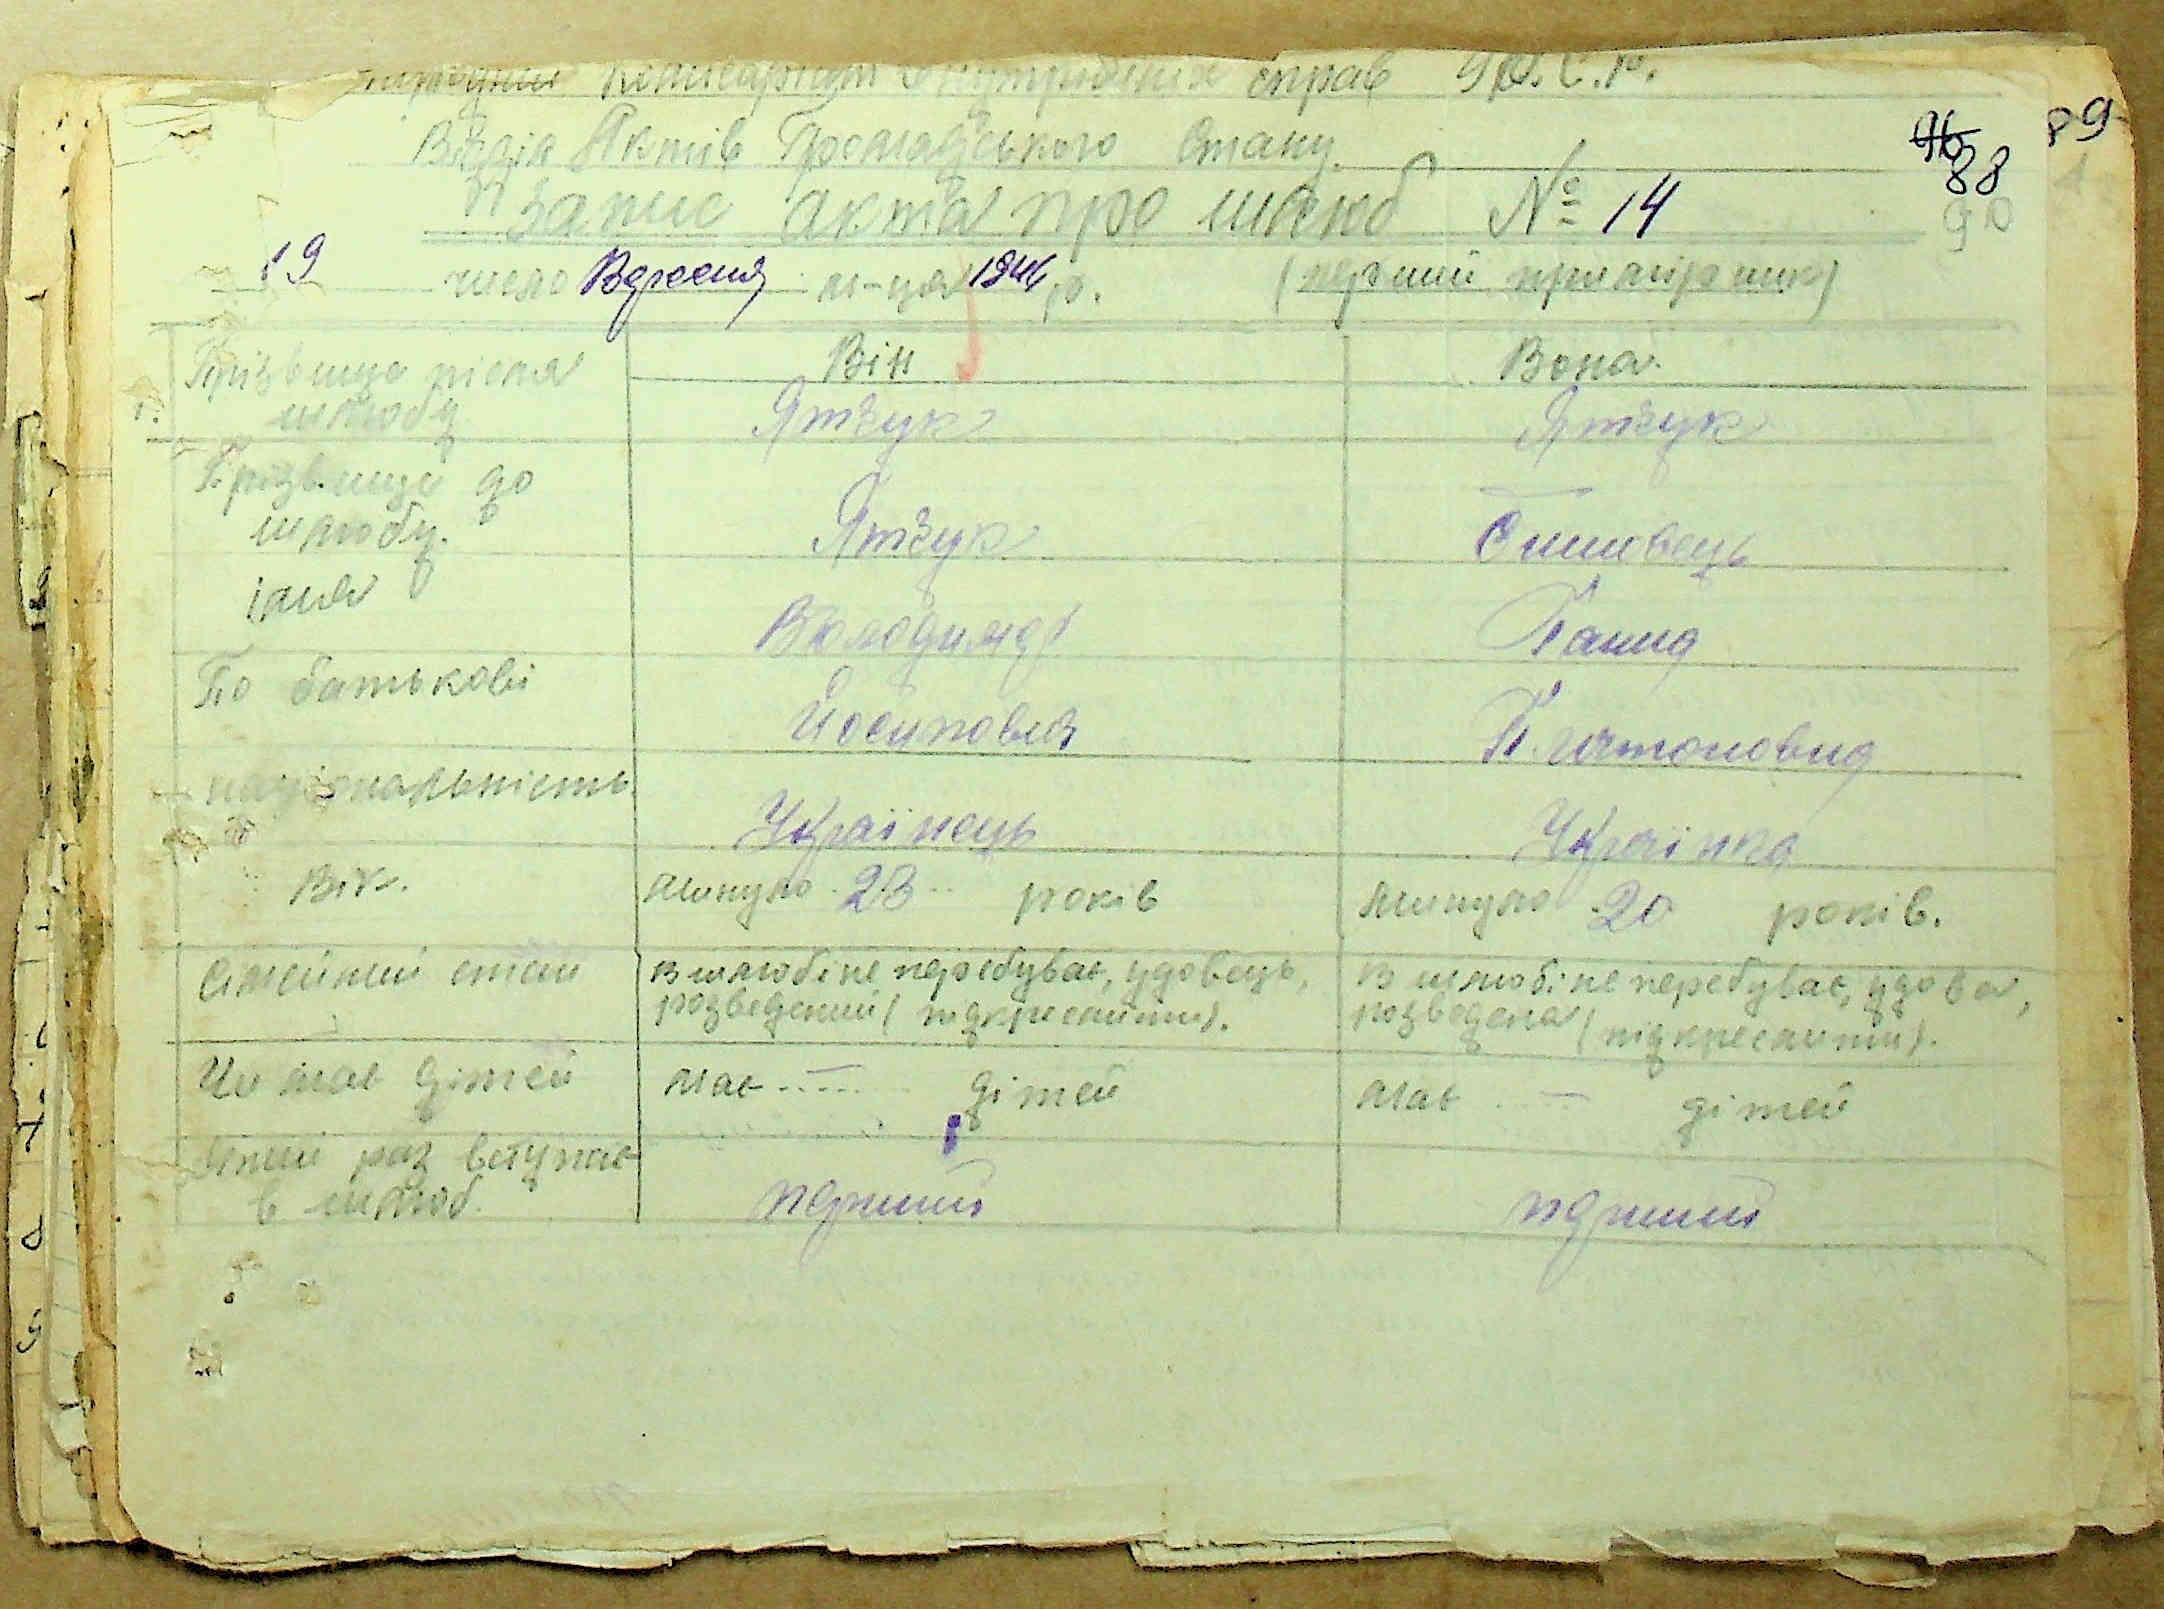 Народний Комісаріат Внутрішніх справ УР.С.Р.
Відділ Актів Громадського Стану
96
89
88
Запис акта про шлюб № 14
90
19 число Вересня м-ця 1944 р. (перший примірник)
Прізвище після шлюбу
Він
Вона
Ятчук
Ятчук
Прізвище до шлюбу
Ятчук
імя
Володимір
Ганна
По батькові
Йосипович
Платоновна
національність
Українець
Українка
Вік.
минуло 23 років
минуло 20 років.
Сімейний стан
В шлюбі не перебуває, удовець,
розведений (підкреслити).
В шлюбі не перебуває, удова,
розведена (підкреслити).
Чи має дітей
має — дітей
має — дітей
раз вступає
в шлюб.
перший
перший